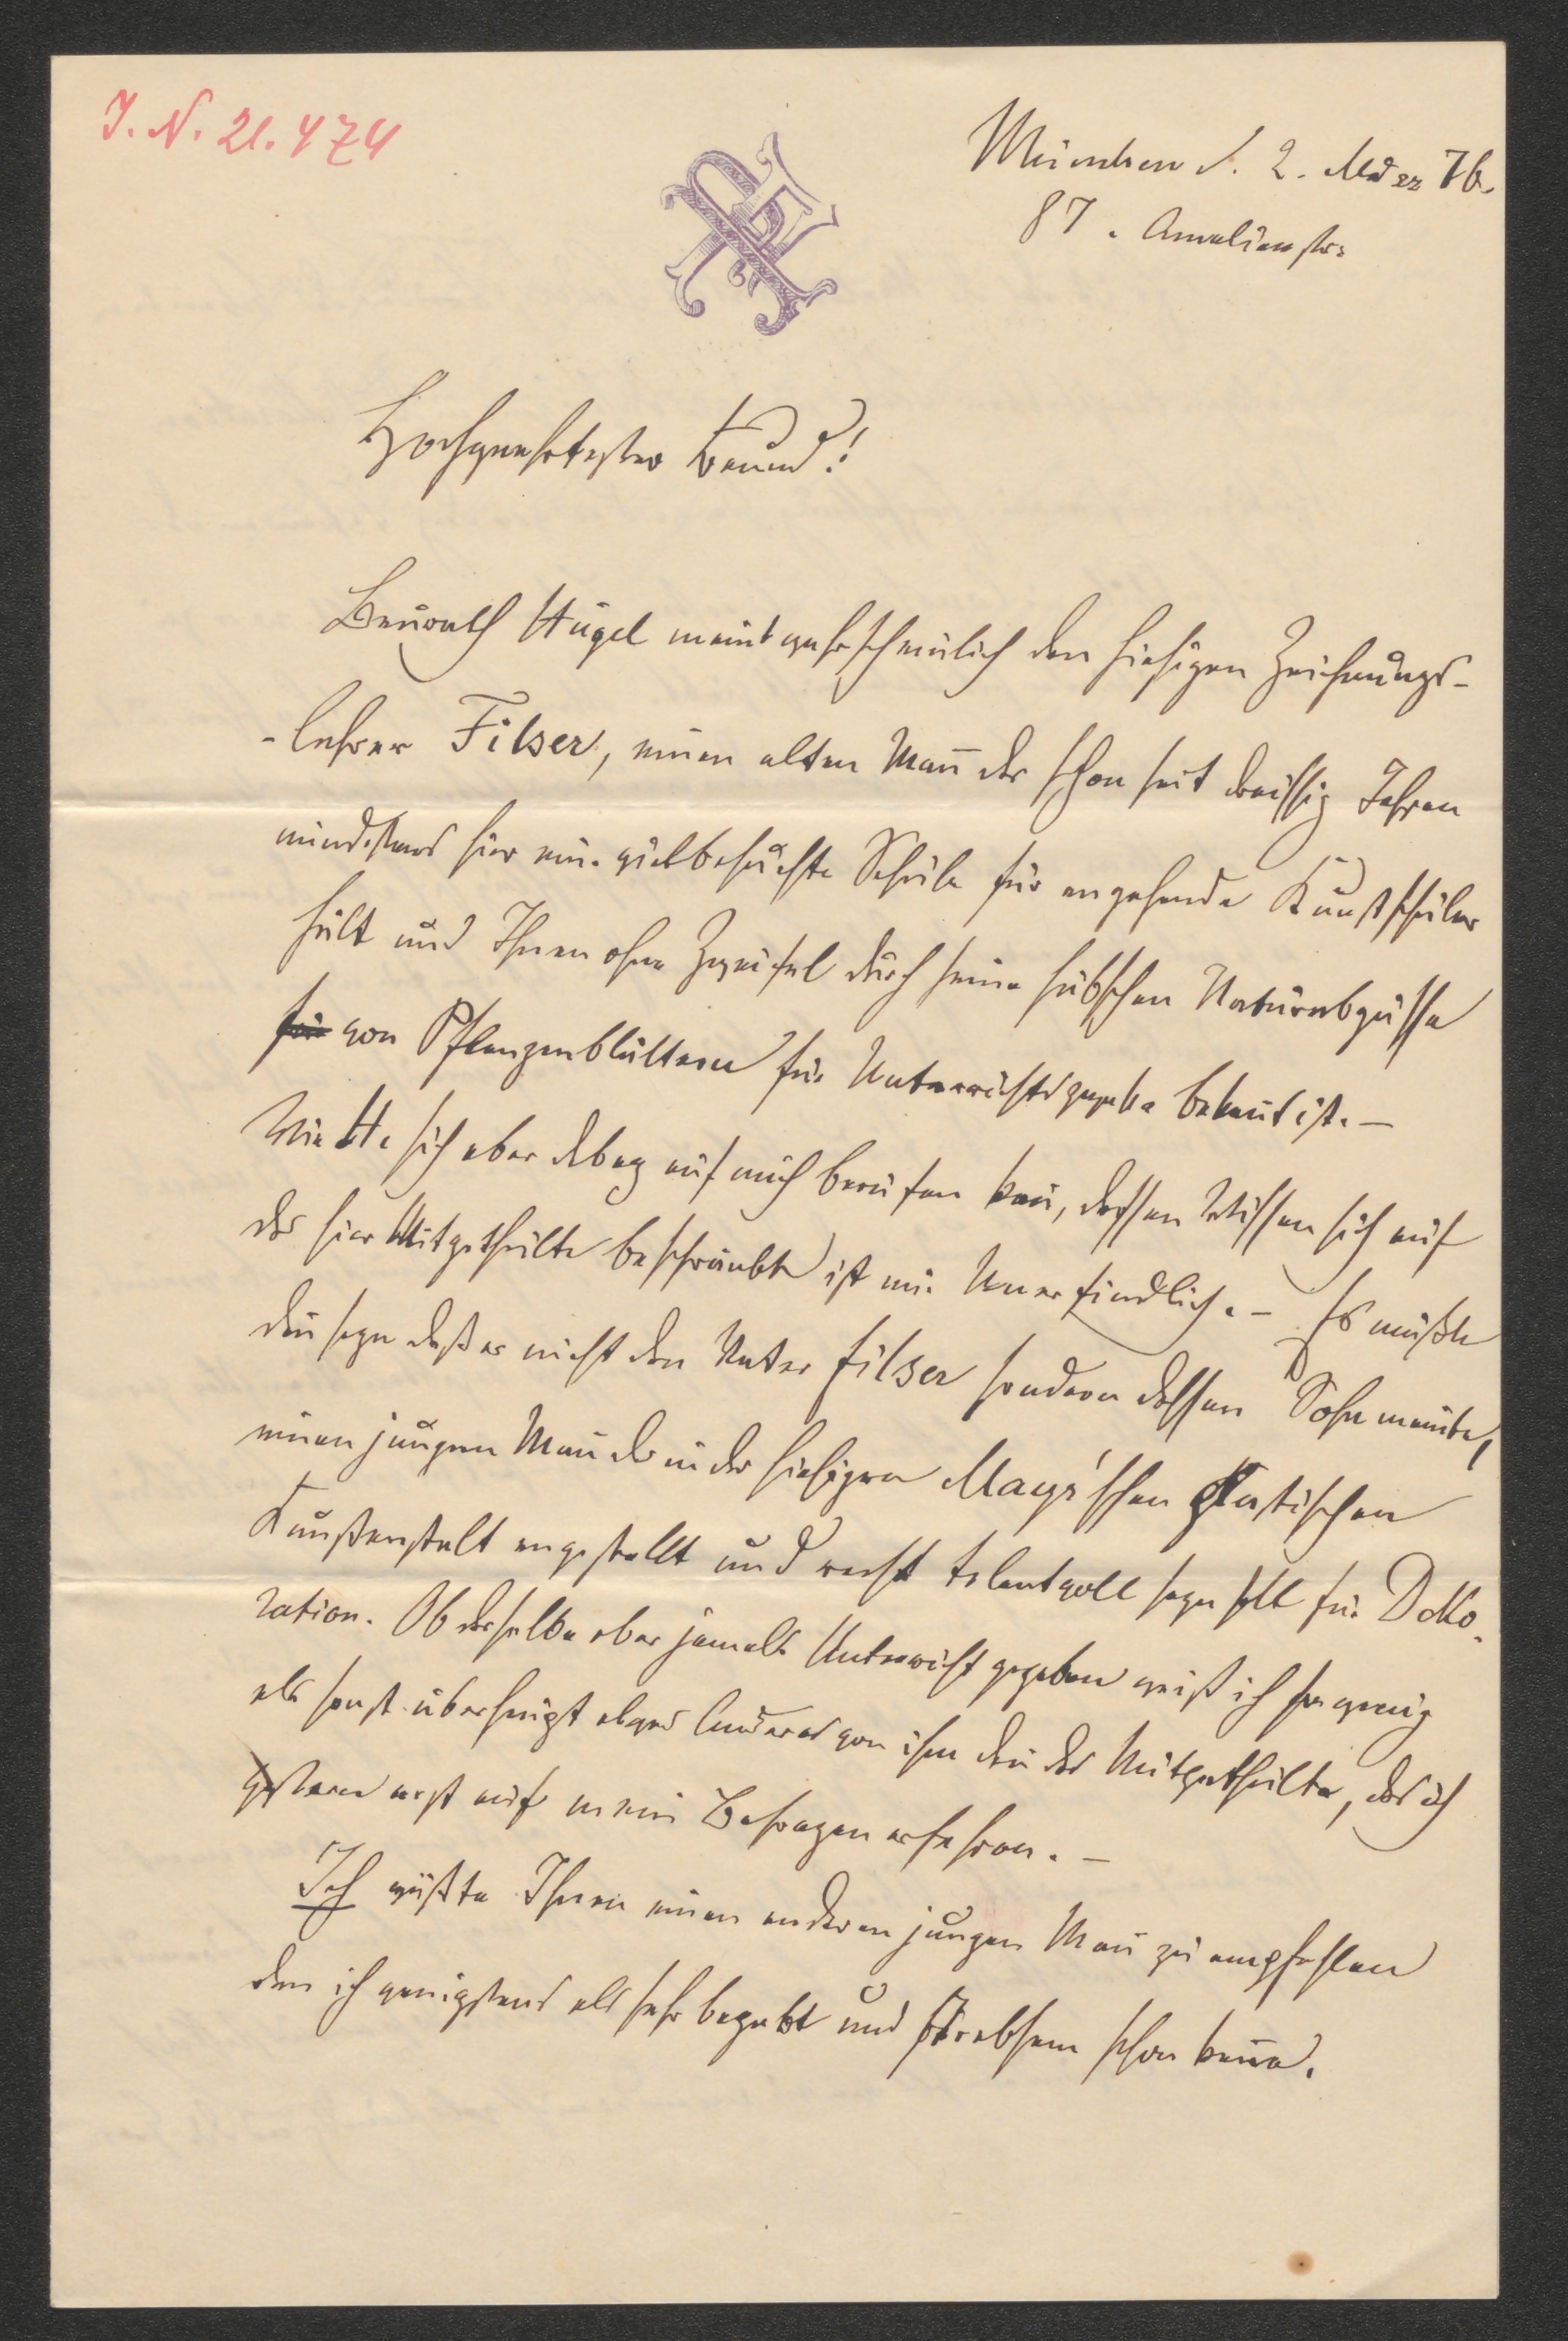 J. N. 21.474
München d. 2. März 76.
87. Amalienstr.
Hochgeehrtester Freund!
Baurath Hügel meint wahrscheinlich den hiesigen Zeichnungs-
-lehrer Filser, einen alten Mañ der schon seit dreissig Jahren
mindestens hier eine vielbesuchte Schule für angehende Kunstschüler
hält und Ihnen ohne Zweifel durch seine hübschen Naturabgüsse
für von Pflanzenblättern für Unterrichtszwecke bekañt ist. —
Wie H. sich aber dabey auf mich berufen kañ, dessen Wissen sich auf
das hier Mitgetheilte beschränkt ist mir Unerfindlich. — Es müßte
deñ seyn daß er nicht den Vater Filser sondern dessen Sohn meinte,
einen jungen Mañ der in der hiesigen Mayr'schen plastischen
Kunstanstalt angestellt und recht talentvoll seyn soll für Deko-
ration. Ob derselbe aber jemals Unterricht gegeben weiß ich so wenig
als sonst überhaupt etwas Anderes von ihm deñ das Mitgetheilte, das ich
gestern erst auf mein Befragen erfahren. —
Ich wüßte Ihnen einen anderen jungen Mañ zu empfehlen
den ich wenigstens als sehr begabt und strebsam schon keñe.